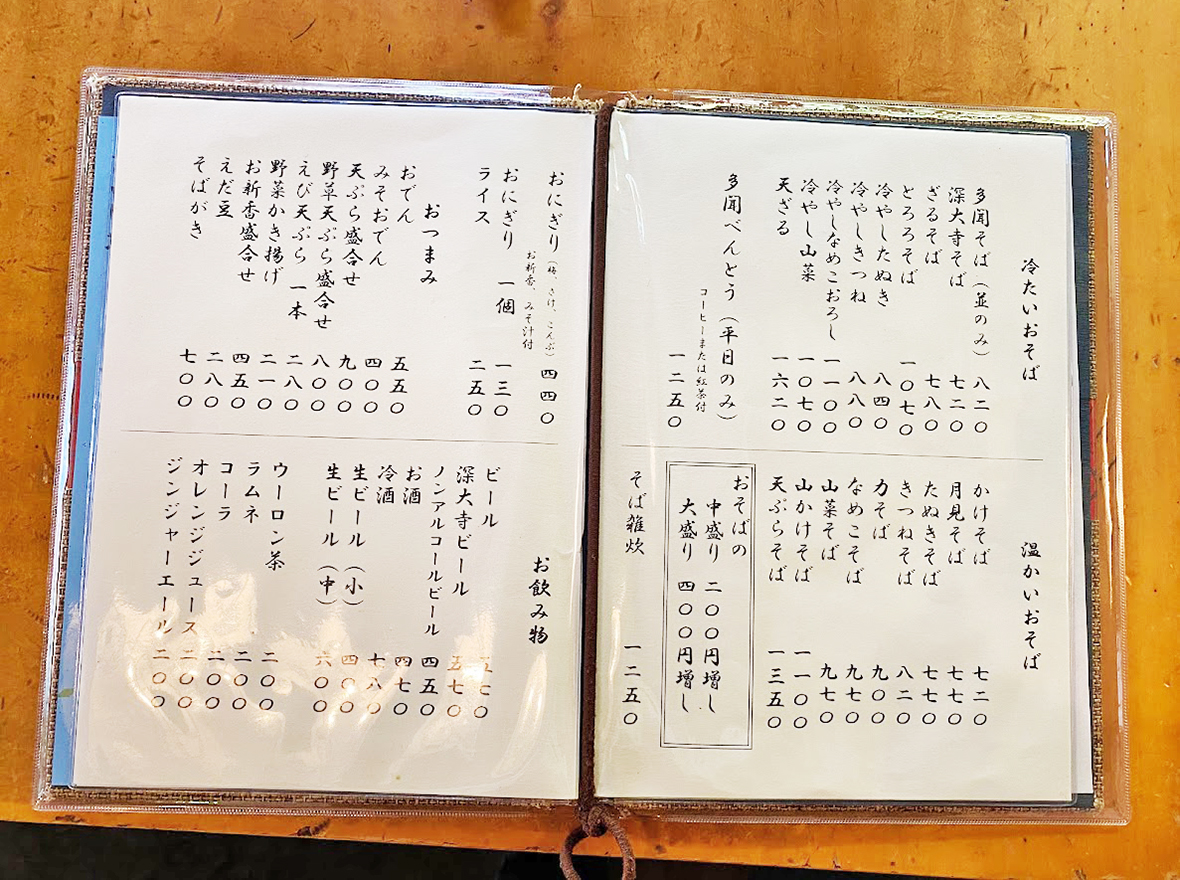 冷たいおそば
多聞そば（並のみ） 八二〇
深大寺そば 七二〇
ざるそば 七八〇
とろろそば 一〇七〇
冷やしたぬき 八四〇
冷やしきつね 八八〇
冷やしなめこおろし 一一〇〇
冷やし山菜 一〇七〇
天ざる 一六二〇
多聞べんとう（平日のみ）
コーヒーまたは紅茶付
一二五〇
温かいおそば
かけそば 七二〇
月見そば 七七〇
たぬきそば 七七〇
きつねそば 八二〇
力そば 九〇〇
なめこそば 九七〇
山菜そば 九七〇
山かけそば 一一〇〇
天ぷらそば 一三五〇
おそばの
中盛り 二〇〇円増し
大盛り 四〇〇円増し
そば雑炊 一二五〇
おにぎり（梅、さけ、こんぶ） 四四〇
お新香、みそ汁付
おにぎり 一個 一三〇
ライス 二五〇
おつまみ
おでん 五五〇
みそおでん 四〇〇
天ぷら盛合せ 九〇〇
野草天ぷら盛合せ 八〇〇
えび天ぷら 一本 二八〇
野菜かき揚げ 二一〇
お新香盛合せ 四五〇
えだ豆 二八〇
そばがき 七〇〇
お飲み物
ビール 五七〇
深大寺ビール 五七〇
ノンアルコールビール 四五〇
お酒 四七〇
冷酒 七八〇
生ビール（小） 四〇〇
生ビール（中） 六〇〇
ウーロン茶 二〇〇
ラムネ 二〇〇
コーラ 二〇〇
オレンジジュース 二〇〇
ジンジャーエール 二〇〇